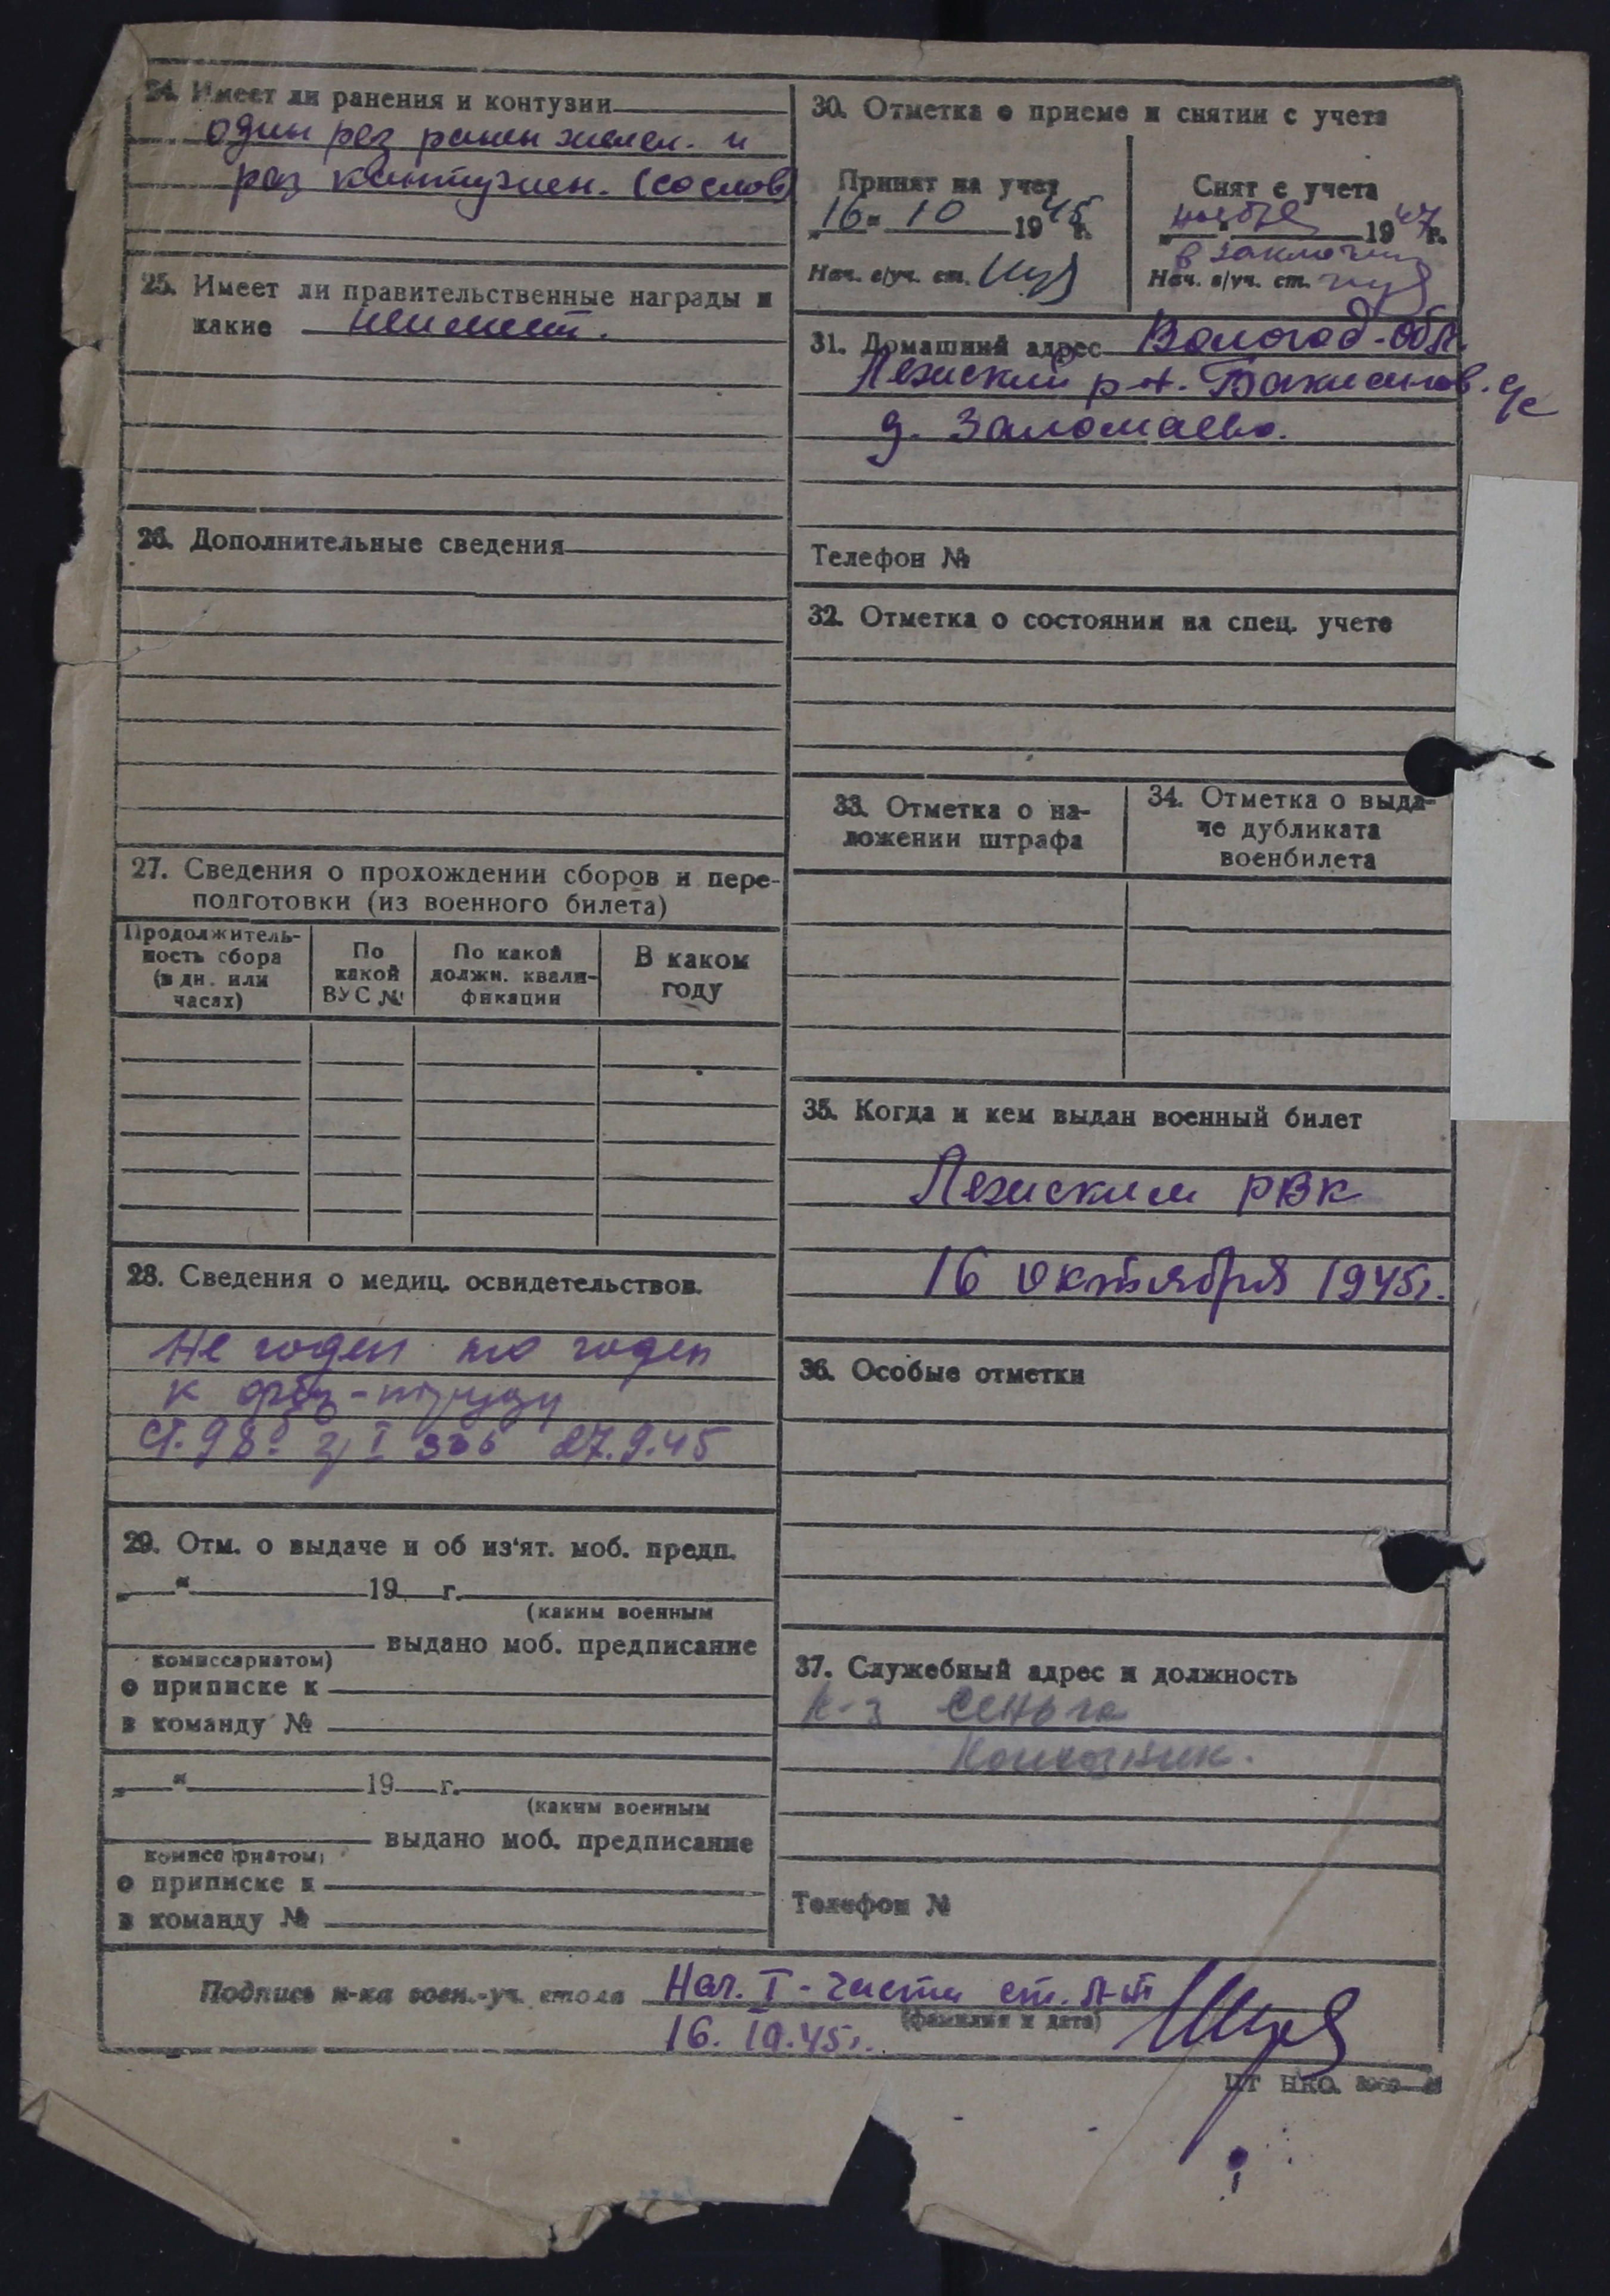 24. Имеет ли ранения и контузии
один раз ранен и
раз контужен. (со слов)
25. Имеет ли правительственные награды и
какие не имеет.
26. Дополнительные сведения
27. Сведения о прохождении сборов и пере-
подготовки (из военного билета)
Продолжитель-
ность сбора
(в дн. или
часах)
По
какой
ВУС №
По какой
должн. квали-
фикации
В каком
году
28. Сведения о медиц. освидетельствов.
Не годен но годен
к физ-труду
ст. 98 I 336 27.9.45
29. Отм. о выдаче и об из'ят. моб. предп.
„ “ 19 г.
(каким военным
выдано моб. предписание
комиссариатом)
о приписке к
в команду №
„ “ 19 г.
(каким военным
выдано моб. предписание
комиссариатом)
о приписке к
в команду №
30. Отметка о приеме и снятии с учета
Принят на учет
„16“ 10 1945 г.
Нач. в/уч. ст.
Снят с учета
ноября 1947 г.
в заключении
Нач. в/уч. ст.
31. Домашний адрес Вологод-обл.
Лежский р-н. с/с
д. Заломаево.
Телефон №
32. Отметка о состоянии на спец. учете
33. Отметка о на-
ложении штрафа
34. Отметка о выда-
че дубликата
военбилета
35. Когда и кем выдан военный билет
Лежским РВК
16 октября 1945г.
36. Особые отметки
37. Служебный адрес и должность
к-з Сеньга
Колхозник.
Телефон №
Подпись н-ка воен.-уч. стола Нач. I-части ст. л-т
(фамилия и дата)
16. 10. 45г.
ЦТ НКО